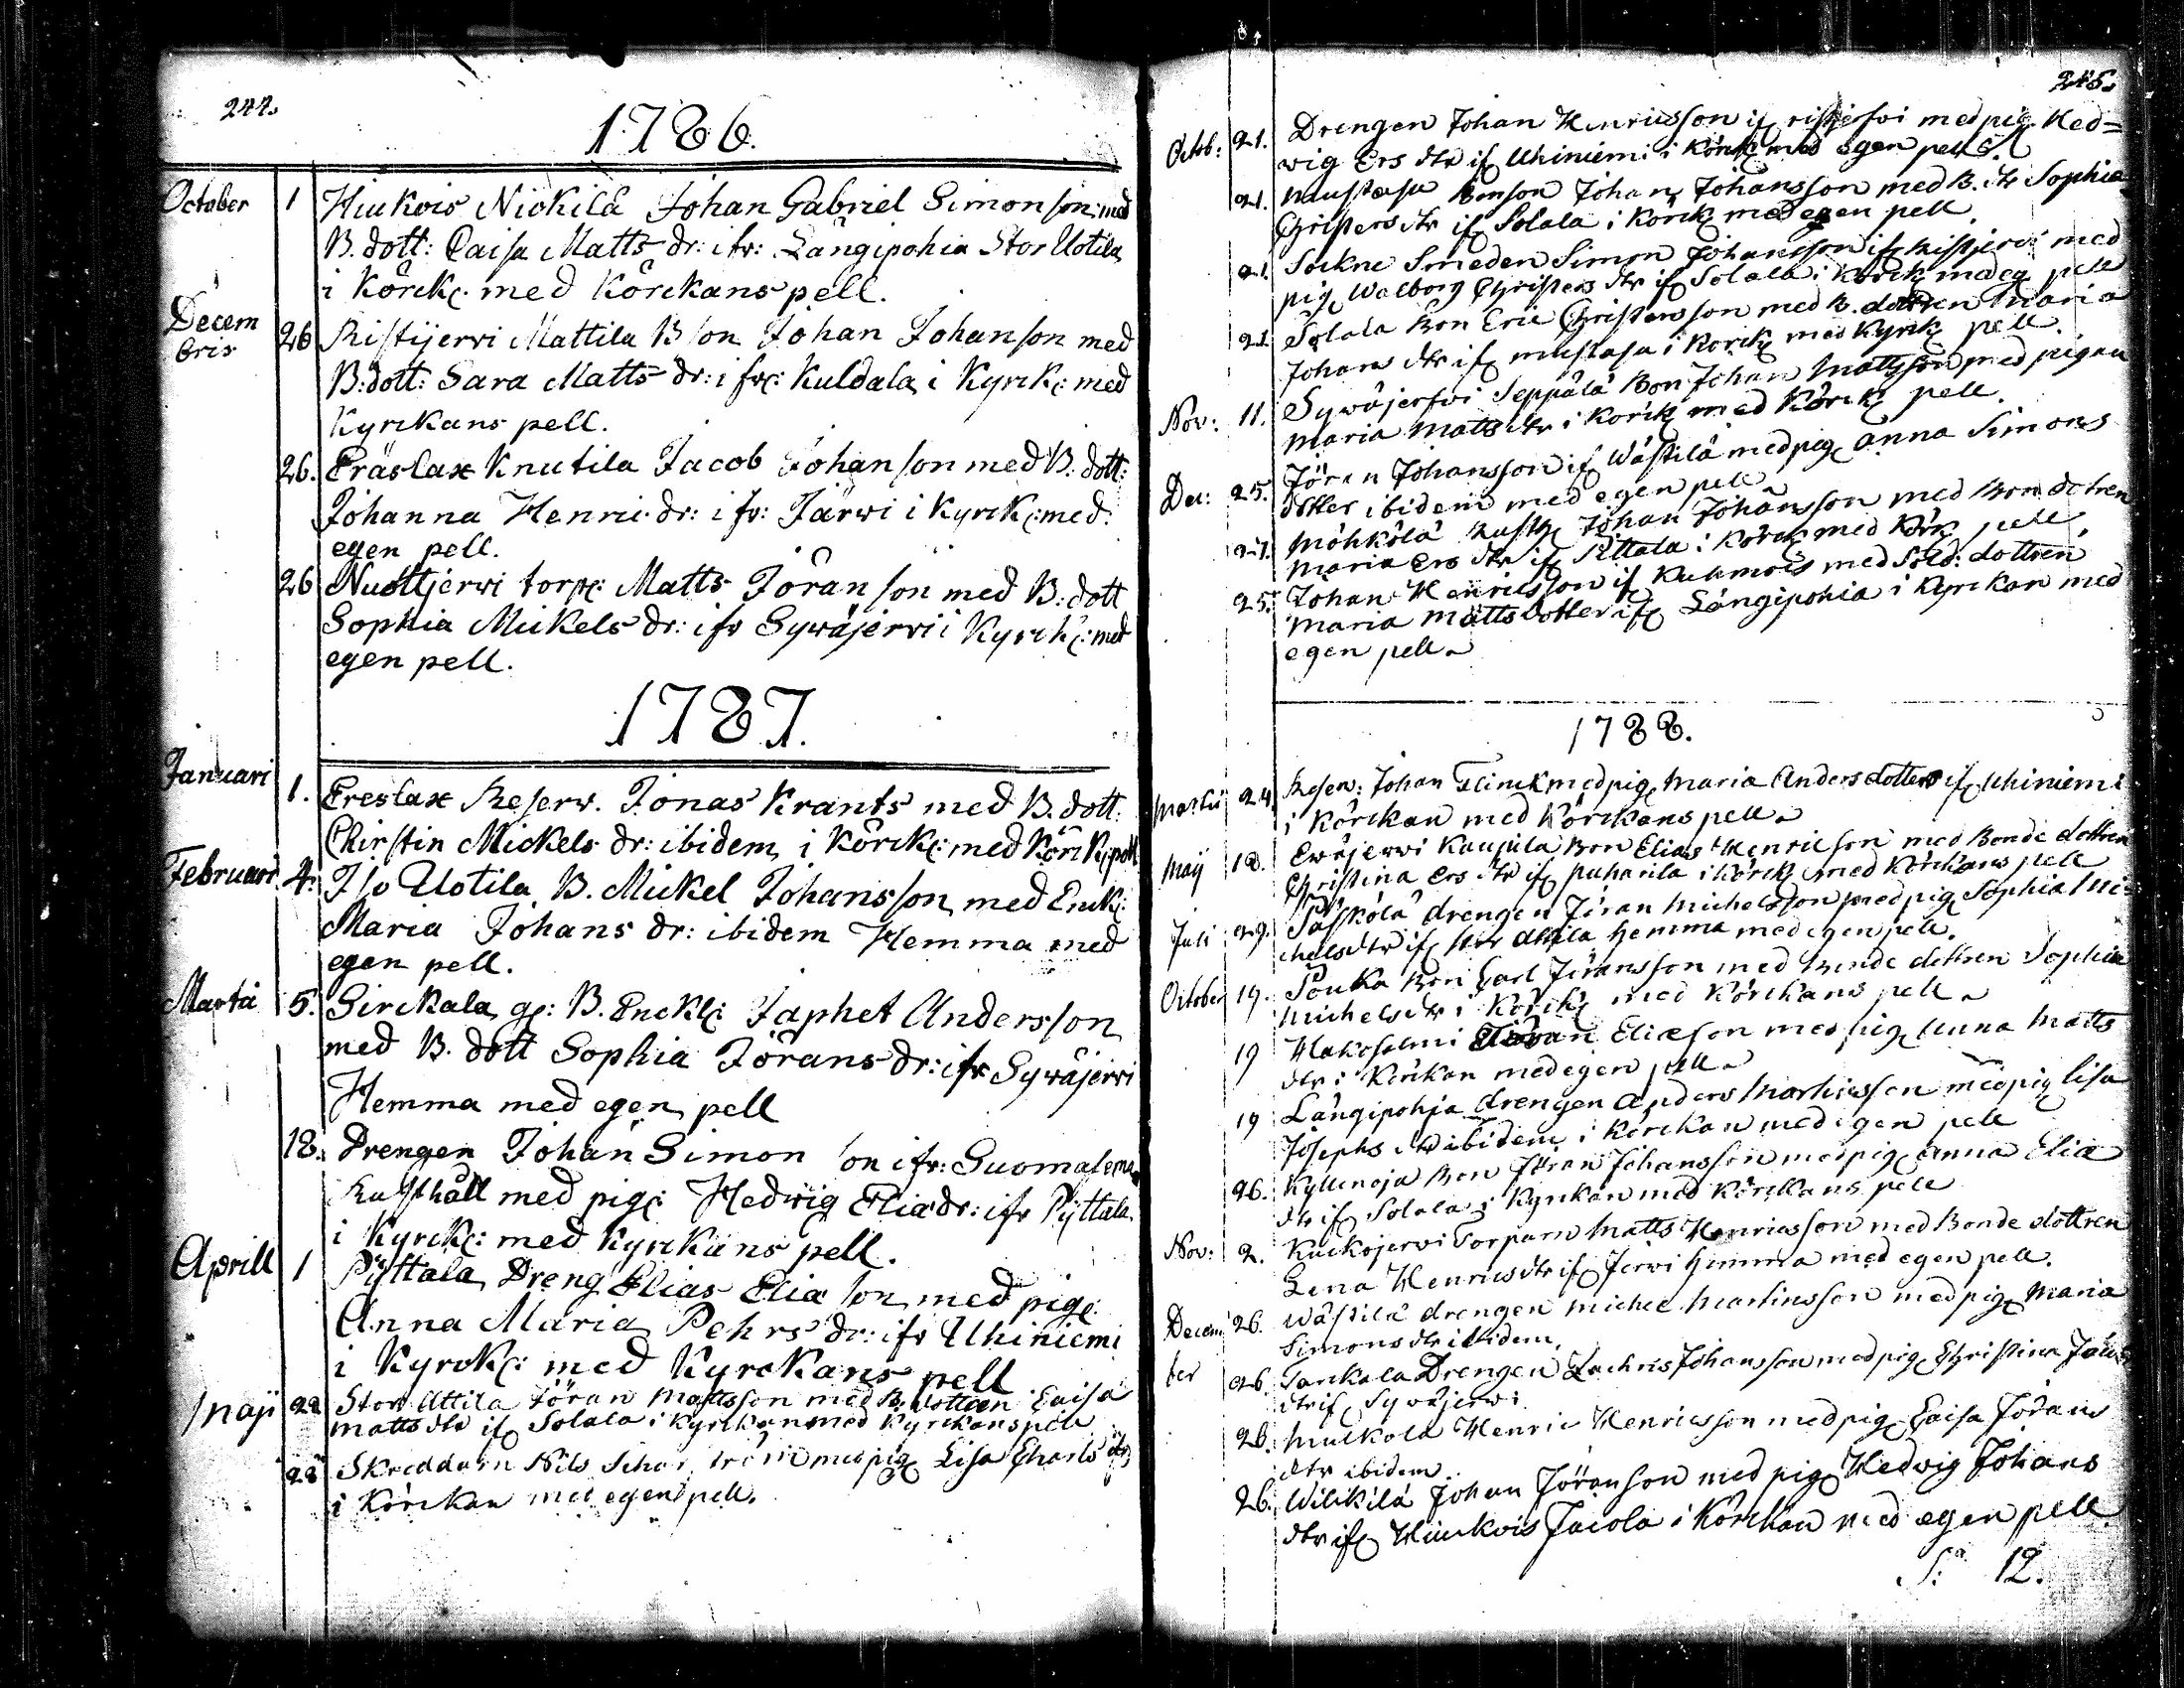 244.
1786.
October 1 Hiukois Nickilä Johan Gabriel Simonson med
B. dott: Caisa Matts dr: ifr: Långipohia Stor Uotila
i Körck: med Körckans pell.
Decem
bris 26 Ristijerwi Mattila B son Johan Johanson med
B: dott: Sara Matts dr: ifr: Kuldala i Kyrck: med
Kyrckans pell.
26. Eräslax Knutila Jacob Johanson med B: dott:
Johanna Henric dr: ifr: Järwi i Kyrck: med
egen pell.
26 torp: Matts Jöranson med B: dott
Sophia Mickels dr: ifr Sywäjerwi i Kyrck: med
egen pell.
1787.
Januari 1. Ereslax Reserw. Jonas Krants med B. dott:
Chirstin Mickels dr: ibidem i Körck: med Körck: pell
Februari 4. Iso Uotila B. Mickel Johansson med Enck:
Maria Johans dr: ibidem Hemma med
egen pell.
Martii 5. Sirckala gl: B. Enckl: Japhet Andersson
med B. dott Sophia Jörans dr: ifr Sywäjerwi
Hemma med egen pell
18. Drengen Johan Simonson ifr: Suomasema
Rusthåll med pig: Hedwig Eliæ dr: ifr Pÿttala
i Kyrck: med Kyrckans pell.
Aprill 1 Pÿttala Dreng Elias Eliæson med pig:
Anna Maria Pehrs dr: ifr Uhiniemi
i Kyrck: med Kyrckans pell
Maji 22 Stor Attila Jöran Mattsson med B. dottren Caisa
Matts dtr if Solala i Kyrckan med Kyrckans pell
28 Skreddarn Nils med pig Lisa Charls dtr
i Körckan med egen pell.
245.
Octob: 21. Drengen Johan Henricsson if ristijerwi med pig. Hed=
wig Ers dtr if Uhiniemi i Körck med egen pell.
21. Mustasa Bonson Johan Johansson med B. dtr Sophia
Christers dtr if Solala i Körck med egen pell.
21. Sockne Smeden Simon Johansson if Ristijerwi med
pig Walborg Christers dtr if Solala i Körck med eg pell
21. Solala Bon Eric Christersson med B. dottren Maria
Johans dtr if mustasa i Körck med Kyrck pell.
Nov: 11. Sywäjerfwi Seppälä Bon Johan Mattsson med pigan
Maria Matts dtr i Körck med Körck pell.
Dec: 25. Jöran Johansson if Wästilä med pig Anna Simons
dotter ibidem med egen pell
27. Möhkölä Rusth Johan Johansson med Bon dotren
Maria Ers dtr if Pittala i Körck med Körk pell.
25. Johan Henricsson if Kuhmois med Sold: dottren
Maria Matts dotter if Långipohia i Kyrckan med
egen pell
1788.
Martii 24. Reserv: Johan Flinck med pig Maria Anders dotter if Uhiniemi
i Körckan med Körckans pell
Maij 18. Ewäjerwi Kaupila Bon Elias Henricson med Bonde dottren
Christina Ers dtr if puharila i Körck med Körckans pell
Juli 29. Päsköla drengen Jöran Michelsson med pig Sophia Mi=
chels dtr if stor Attila hemma med egen pell.
October 19. Pouka Bon Carl Jöransson med Bonde dottren Sophia
Michels dtr i Körck med Körckans pell
19 Hakosalmi Jöran Eliæson med pig Anna Matts
dtr i Körckan med egen pell
19 Långipohja drengen Anders Martinsson med pig Lisa
Josephs dtr ibidem i Körckan med egen pell
26. Kyllenoja Bon Jöran Johansson med pig Anna Eliæ
dtr if Solala i Kyrckan med Körckans pell
Nov: 2. Kuckojerwi Torparn Matts Henricsson med Bonde dottren
Lena Henrics dtr if Jerwi hemma med egen pell.
Decem 26. Wästilä drengen Michel Martinsson med pig Maria
Simons dtr ibidem.
ber 26. Tankala Drengen Zachris Johansson med pig Christina
dtr if Sywäjerwi
26. Muckola Henric Henricsson med pig Caisa Jörans
dtr ibidem
26. Wilckilä Johan Jöranson med pig Hedwig Johans
dtr if Hiuckois Jacola i Körckan med egen pell.
S:a 12.